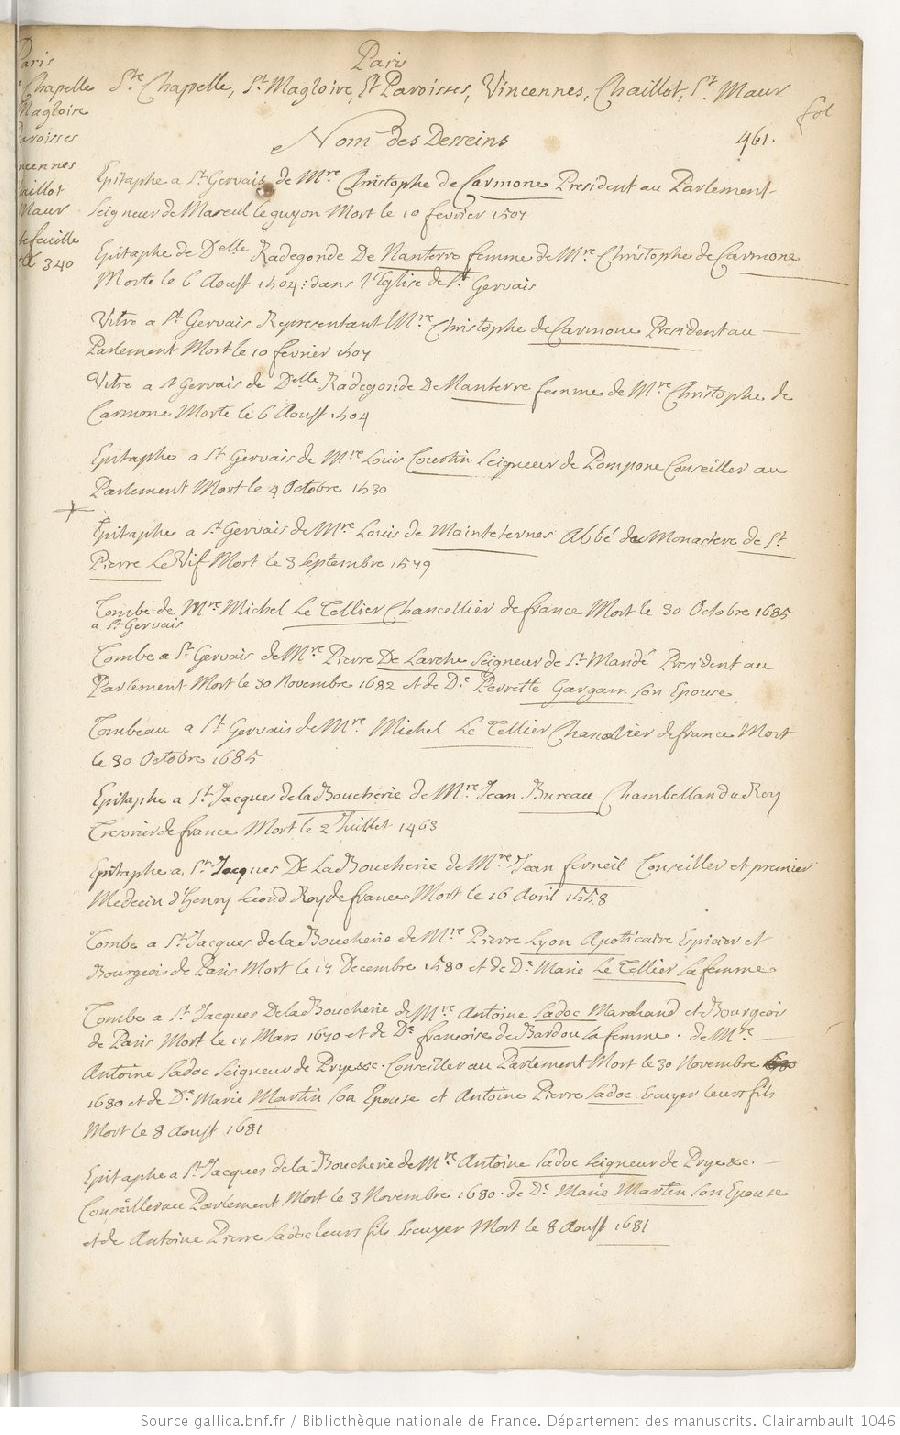 Paris
Chapelle
Magloire
Paroisses
Vincennes
Chaillot
Maur
340
Paris
Ste Chapelle, St Magloire, Et Paroisses, Vincennes, Chaillot, St Maur
fol
Nom des Desseins 461.
Epitaphe a St Gervais de Mre Christophe de Carmone President au Parlement
Seigneur de Mareul le guyon Mort le 10 fevrier 1507
Epitaphe de Delle Radegonde De Nanterre femme de Mre Christophe de Carmone
Morte le 6 Aoust 1504: dans l'Eglise de St Gervais
Vitre a St Gervais Representant Mre Christophe de Carmone President au
Parlement Mort le 10 fevrier 1507
Vitre a St Gervais de Delle Radegonde De Nanterre femme de Mre Christophe de
Carmone Morte le 6 Aoust 1504
Epitaphe a St Gervais de Mre Louis Courtin Seigneur de Pompone Conseiller au
Parlement Mort le 4 Octobre 1530
Epitaphe a St Gervais de Mre Louis de Mainteternes Abbé du Monastere de St
Pierre Le Vif Mort le 3 Septembre 1579
Tombe de Mre Michel Le Tellier Chancellier de france Mort le 30 Octobre 1685
a St Gervais
Tombe a St Gervais de Mre Pierre De Larche Seigneur de St Mandé President au
Parlement Mort le 30 Novembre 1682 et de De Perrette Gargam son Epouse
Tombeau a St Gervais de Mre Michel Le Tellier Chancelier de france Mort
le 30 Octobre 1685
Epitaphe a St Jacques de la Boucherie de Mre Jean Bureau Chambelland du Roy
Tresorier de france Mort le 2 Juillet 1463
Epitaphe a St Jacques De La Boucherie de Mre Jean ferneil Conseiller et premier
Medecin d'Henry second Roy de france Mort le 26 Avril 1558
Tombe a St Jacques de la Boucherie de Mre Pierre Lyon Apoticaire Epicier et
Bourgeois de Paris Mort le 17 Decembre 1580 et de De Marie Le Tellier sa femme
Tombe a St Jacques De la Boucherie de Mre Antoine Sadoc Marchand et Bourgeois
de Paris Mort le 17 Mars 1670 et de De francoise de Bardou sa femme. de Mre
Antoine Sadoc Seigneur de Prye &c. Conseiller au Parlement Mort le 30 Novembre
1680 et de De Marie Martin Son Epouse et Antoine Pierre Sadoc Escuyer leurs fils
Mort le 8 Aoust 1681
Epitaphe a St Jacques de la Boucherie de Mre Antoine Sadoc Seigneur de Prye &c.
Conseiller au Parlement Mort le 3 Novembre 1680. de De Marie Martin son Epouse
et de Antoine Pierre Sadoc leurs fils Escuyer Mort le 8 Aoust 1681
Source gallica.bnf.fr / Bibliothèque nationale de France. Département des manuscrits. Clairambault 1046